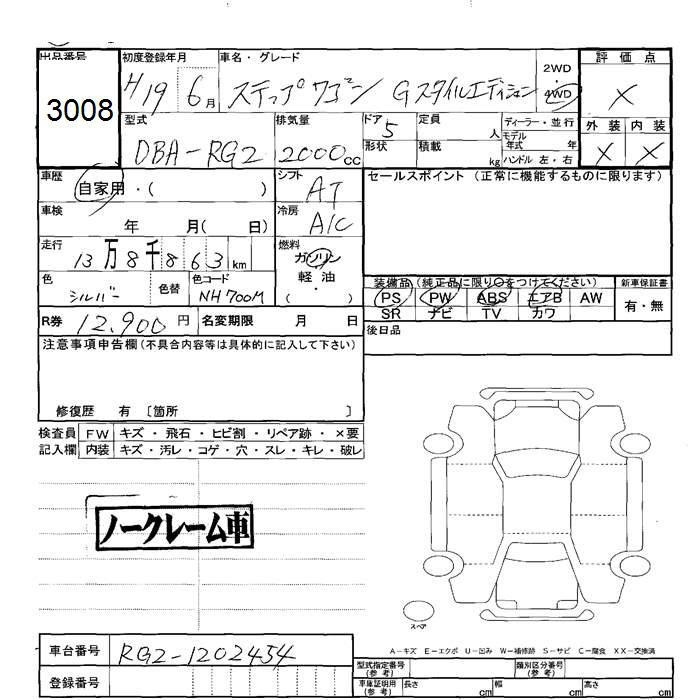 出品番号
3008
初度登録年月
H19 6月
車名・グレード
ステップワゴン Gスタイルエディション
2WD
4WD
評価点
X
外装 内装
X X
型式
DBA-RG2
排気量
2000cc
ドア 5
形状
定員 人
積載 kg
ディーラー・並行
モデル年式 年
ハンドル 左・右
車歴
自家用・( )
シフト
AT
セールスポイント (正常に機能するものに限ります)
車検
年 月( 日)
冷房
A/C
走行
13万8千863km
燃料
ガソリン
軽油
( )
色
シルバー
色替
色コード
NH700M
装備品(純正品に限り○をつけてください)
PS PW ABS エアB AW
SR ナビ TV カワ
新車保証書
有・無
R券 12,900円
名変期限 月 日
後日品
注意事項申告欄(不具合内容等は具体的に記入して下さい)
修復歴 有 〔箇所 〕
検査員記入欄
FW キズ・飛石・ヒビ割・リペア跡・×要
内装 キズ・汚レ・コゲ・穴・スレ・キレ・破レ
ノークレーム車
スペア
A-キズ E-エクボ U-凹み W-補修跡 S-サビ C-腐食 XX-交換済
車台番号
RG2-1202454
登録番号
型式指定番号(参考)
類別区分番号(参考)
車庫証明用(参考) 長さ cm 幅 cm 高さ cm